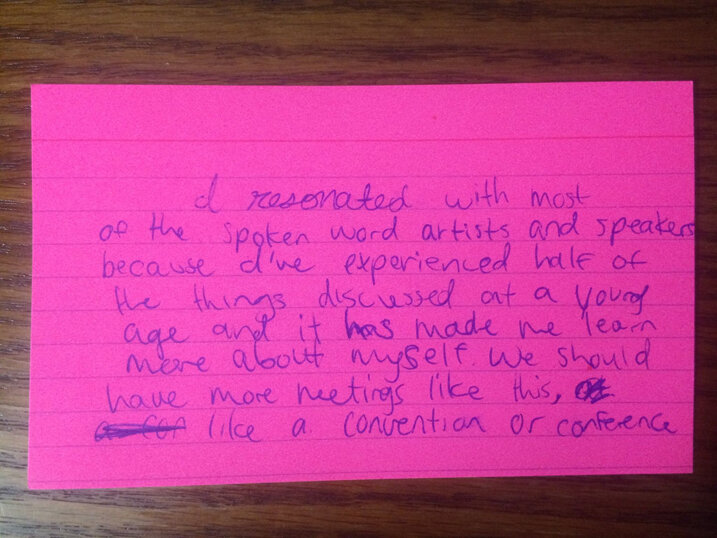 I resonated with most
of the spoken word artists and speakers
because I've experienced half of
the things discussed at a young
age and it has made me learn
more about myself. We should
have more meetings like this,
like a convention or conference